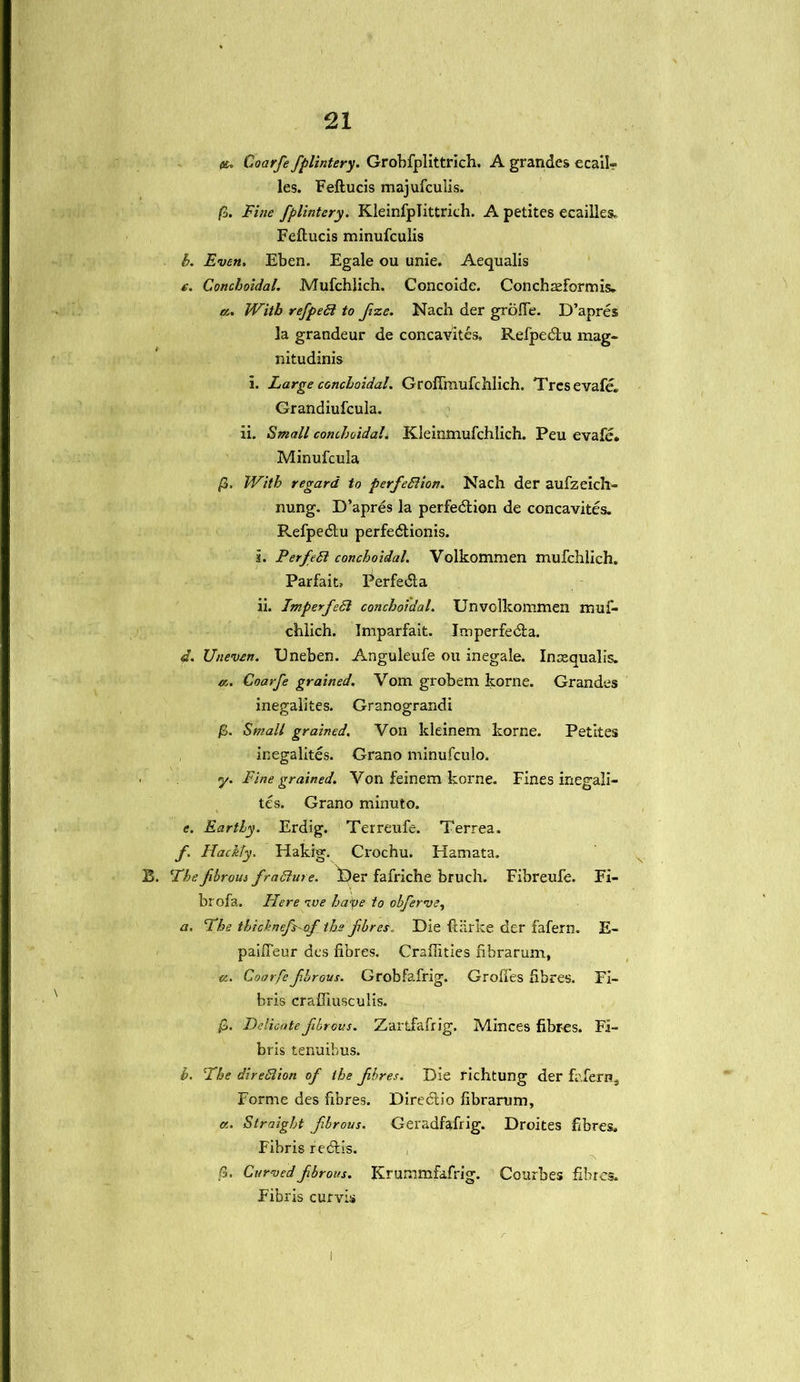 21
α. Coarſe ſplintery. Grobſplittrich. A grandes ecail-
les. Feſtucis majuſculis.
β. Fine ſplintery. Kleinſplittrich. A petites ecailles.
Feſtucis minuſculis
b. Even. Eben. Egale ou unie. Aequalis
c. Conchoidal. Muſchlich. Concoide. Conchæformis.
α. With reſpect to ſize. Nach der gröſſe. D'aprés
la grandeur de concavités. Reſpectu mag-
nitudinis
i. Large conchoidal. Groſſmuſchlich. Tres evaſé.
Grandiuſcula.
ii. Small conchoidal. Kleinmuſchlich. Peu evaſé.
Minuſcula
β. With regard to perfection. Nach der aufzeich-
nung. D'aprés la perfection de concavités.
Reſpectu perfectionis.
i. Perfect conchoidal. Volkommen muſchlich.
Parfait. Perfecta
ii. Imperfect conchoidal. Unvolkommen muſ-
chlich. Imparfait. Imperfecta.
d. Uneven. Uneben. Anguleuſe ou inegale. Inæqualis.
α. Coarſe grained. Vom grobem korne. Grandes
inegalites. Granograndi
β. Small grained. Von kleinem korne. Petites
inegalités. Grano minuſculo.
γ. Fine grained. Von feinem korne. Fines inegali-
tés. Grano minuto.
e. Earthy. Erdig. Terreuſe. Terrea.
f. Hackly. Hakig. Crochu. Hamata.
B. The fibrous fracture. Der faſriche bruch. Fibreuſe. Fi-
broſa. Here we have to obſerve,
a. The thickneſs of the fibres. Die ſtärke der faſern. E-
paiſſeur des fibres. Craſſities fibrarum,
α. Coarſe fibrous. Grobfaſrig. Groſſes fibres. Fi-
bris craſſiusculis.
β. Delicate fibrous. Zartfaſrig. Minces fibres. Fi-
bris tenuibus.
b. The direction of the fibres. Die richtung der faſern,
Forme des fibres. Directio fibrarum,
α. Straight fibrous. Geradfaſrig. Droites fibres.
Fibris rectis.
β. Curved fibrous. Krummfaſrig. Courbes fibres.
Fibris curvis